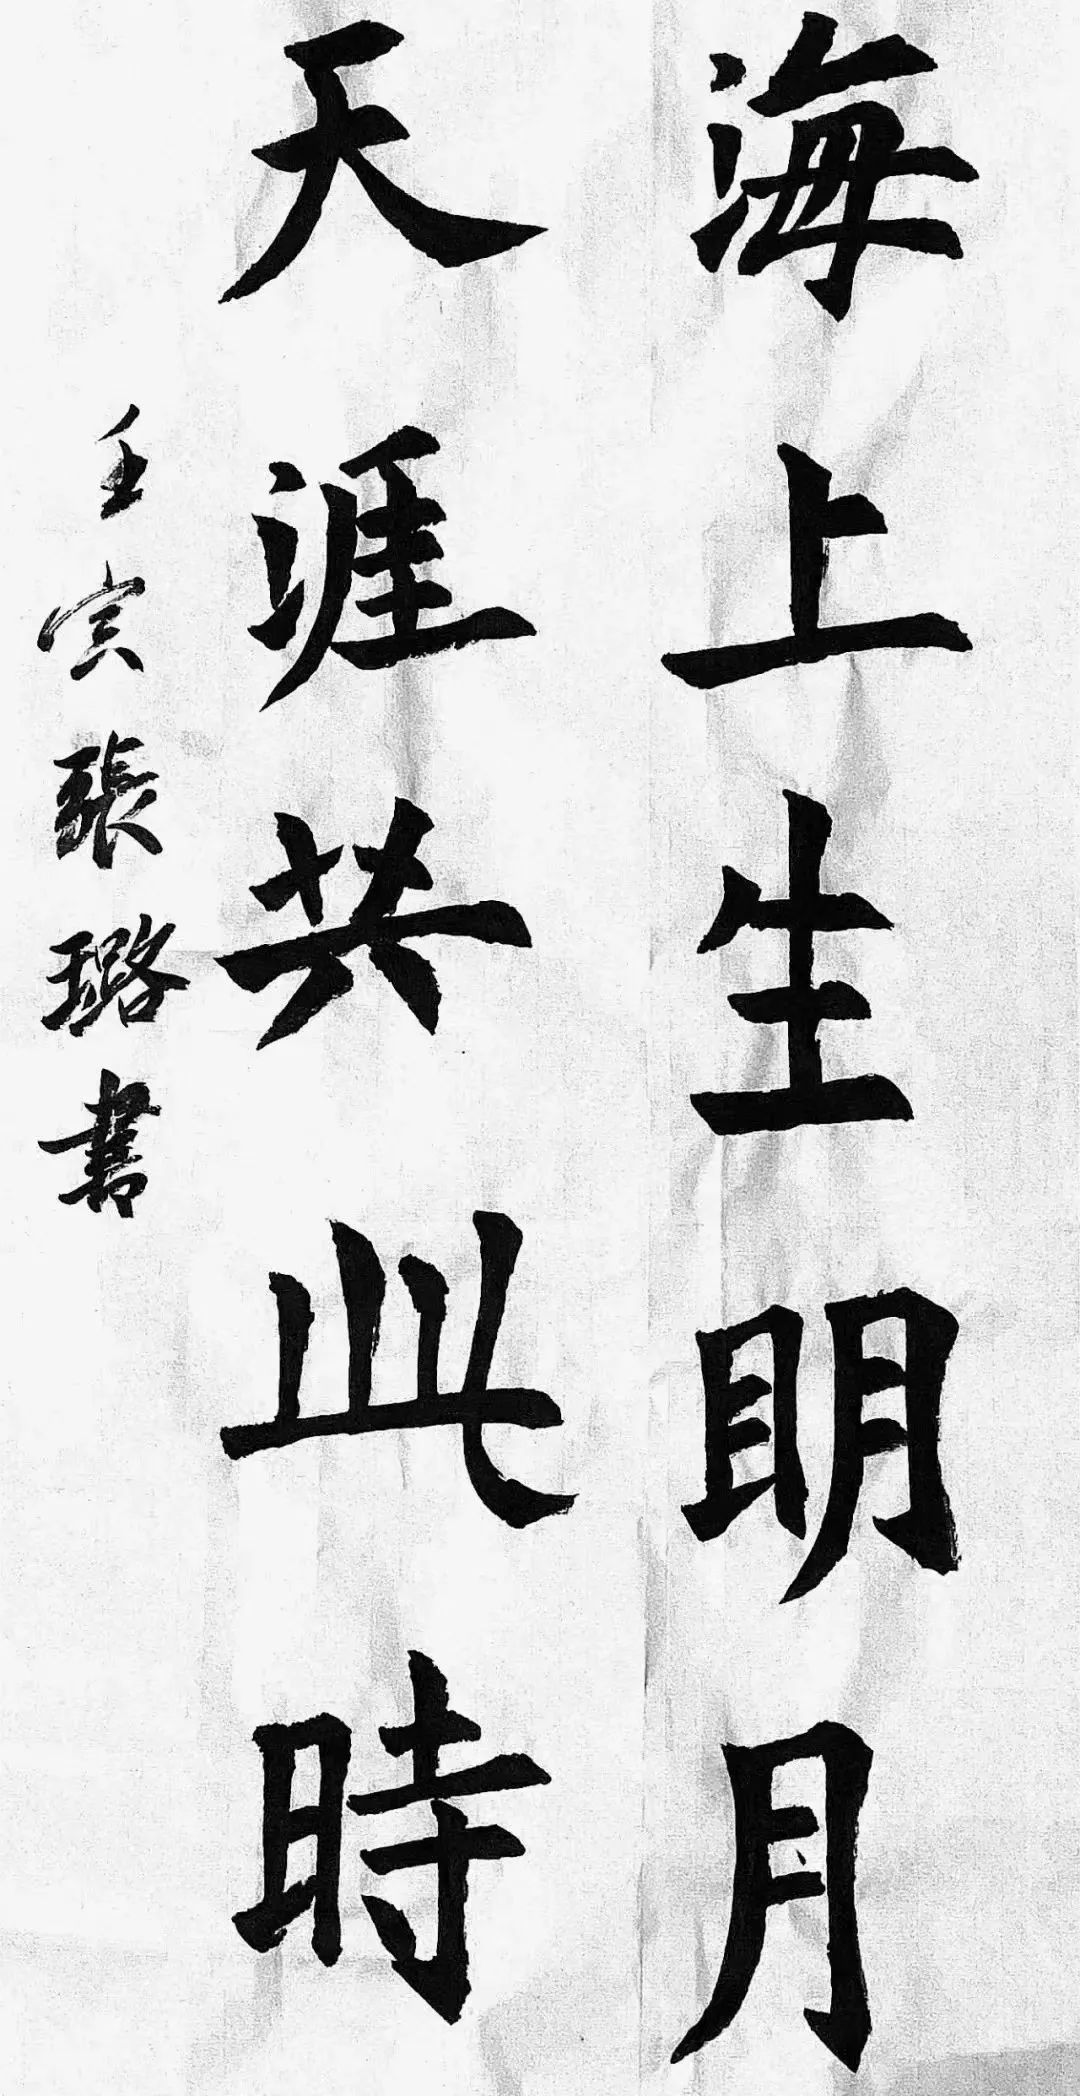 海上生明月
天涯共此時
壬寅張璐書